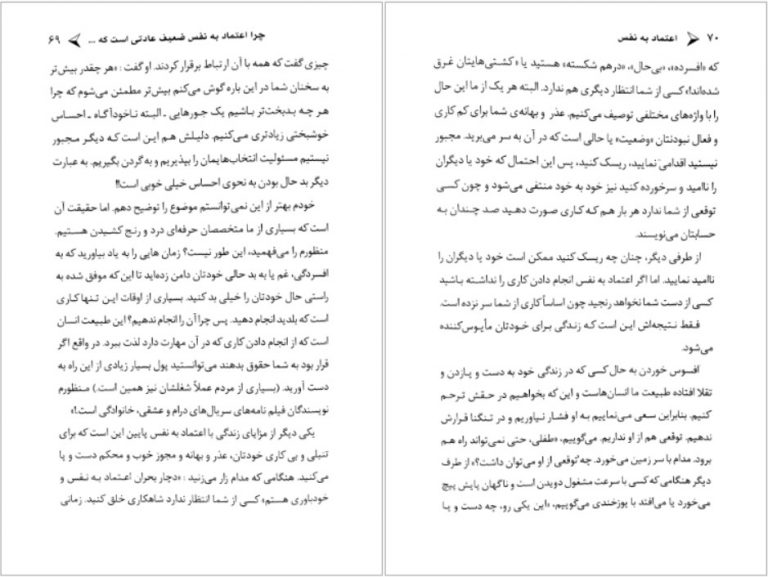 چرا اعتماد به نفس ضعیف عادتی است که ... ۶۹
چیزی گفت که همه با آن ارتباط برقرار کردند. او گفت: «هر چقدر بیش‌تر
به سخنان شما در این باره گوش می‌کنم بیش‌تر مطمئن می‌شوم که چرا
هر چه بدبخت‌تر باشیم یک جورهایی ـ البته ناخودآگاه ـ احساس
خوشبختی زیادتری می‌کنیم. دلیلش هم این است که دیگر مجبور
نیستیم مسئولیت انتخاب‌هایمان را بپذیریم و به گردن بگیریم. به عبارت
دیگر بد حال بودن به نحوی احساس خیلی خوبی است!»
خودم بهتر از این نمی‌توانستم موضوع را توضیح دهم. اما حقیقت آن
است که بسیاری از ما متخصصان حرفه‌ای درد و رنج کشیدن هستیم.
منظورم را می‌فهمید، این طور نیست؟ زمان هایی را به یاد بیاورید که به
افسردگی، غم یا به بد حالی خودتان دامن زده‌اید تا این که موفق شده به
راستی حال خودتان را خیلی بد کنید. بسیاری از اوقات این تنها کاری
است که بلدید انجام دهید. پس چرا آن را انجام ندهیم؟ این طبیعت انسان
است که از انجام دادن کاری که در آن مهارت دارد لذت ببرد. در واقع اگر
قرار بود به شما حقوق بدهند می‌توانستید پول بسیار زیادی از این راه به
دست آورید. (بسیاری از مردم عملاً شغلشان نیز همین است.) منظورم
نویسندگان فیلم نامه‌های سریال‌های درام و عشقی، خانوادگی است.!»
یکی دیگر از مزایای زندگی با اعتماد به نفس پایین این است که برای
تنبلی و بی کاری خودتان، عذر و بهانه و مجوز خوب و محکم دست و پا
می‌کنید. هنگامی که مدام زار می‌زنید: «دچار بحران اعتماد به نفس و
خودباوری هستم» کسی از شما انتظار ندارد شاهکاری خلق کنید. زمانی
۷۰ اعتماد به نفس
که «افسرده»، «بی‌حال»، «درهم شکسته» هستید یا «کشتی‌هایتان غرق
شده‌اند!» کسی از شما انتظار دیگری هم ندارد. البته هر یک از ما این حال
را با واژه‌های مختلفی توصیف می‌کنیم. عذر و بهانه‌ی شما برای کم کاری
و فعال نبودنتان «وضعیت» یا حالی است که در آن به سر می‌برید. مجبور
نیستید اقدامی نمایید، ریسک کنید، پس این احتمال که خود یا دیگران
را ناامید و سرخورده کنید نیز خود به خود منتفی می‌شود و چون کسی
توقعی از شما ندارد هر بار هم که کاری صورت دهید صد چندان به
حسابتان می‌نویسند.
از طرفی دیگر، چنان چه ریسک کنید ممکن است خود یا دیگران را
ناامید نمایید. اما اگر اعتماد به نفس انجام دادن کاری را نداشته باشید
کسی از دست شما نخواهد رنجید چون اساساً کاری از شما سر نزده است.
فقط نتیجه‌اش این است که زندگی برای خودتان مأیوس‌کننده
می‌شود.
افسوس خوردن به حال کسی که در زندگی خود به دست و پازدن و
تقلا افتاده طبیعت ما انسان‌هاست و این که بخواهیم در حقش ترحم
کنیم. بنابراین سعی می‌نماییم به او فشار نیاوریم و در تنگنا قرارش
ندهیم. توقعی هم از او نداریم. می‌گوییم، «طفلی، حتی نمی‌تواند راه هم
برود. مدام با سر زمین می‌خورد. چه توقعی از او می‌توان داشت؟» از طرف
دیگر هنگامی که کسی با سرعت مشغول دویدن است و ناگهان پایش پیچ
می‌خورد یا می‌افتد با پوزخندی می‌گوییم، «این یکی رو، چه دست و پا